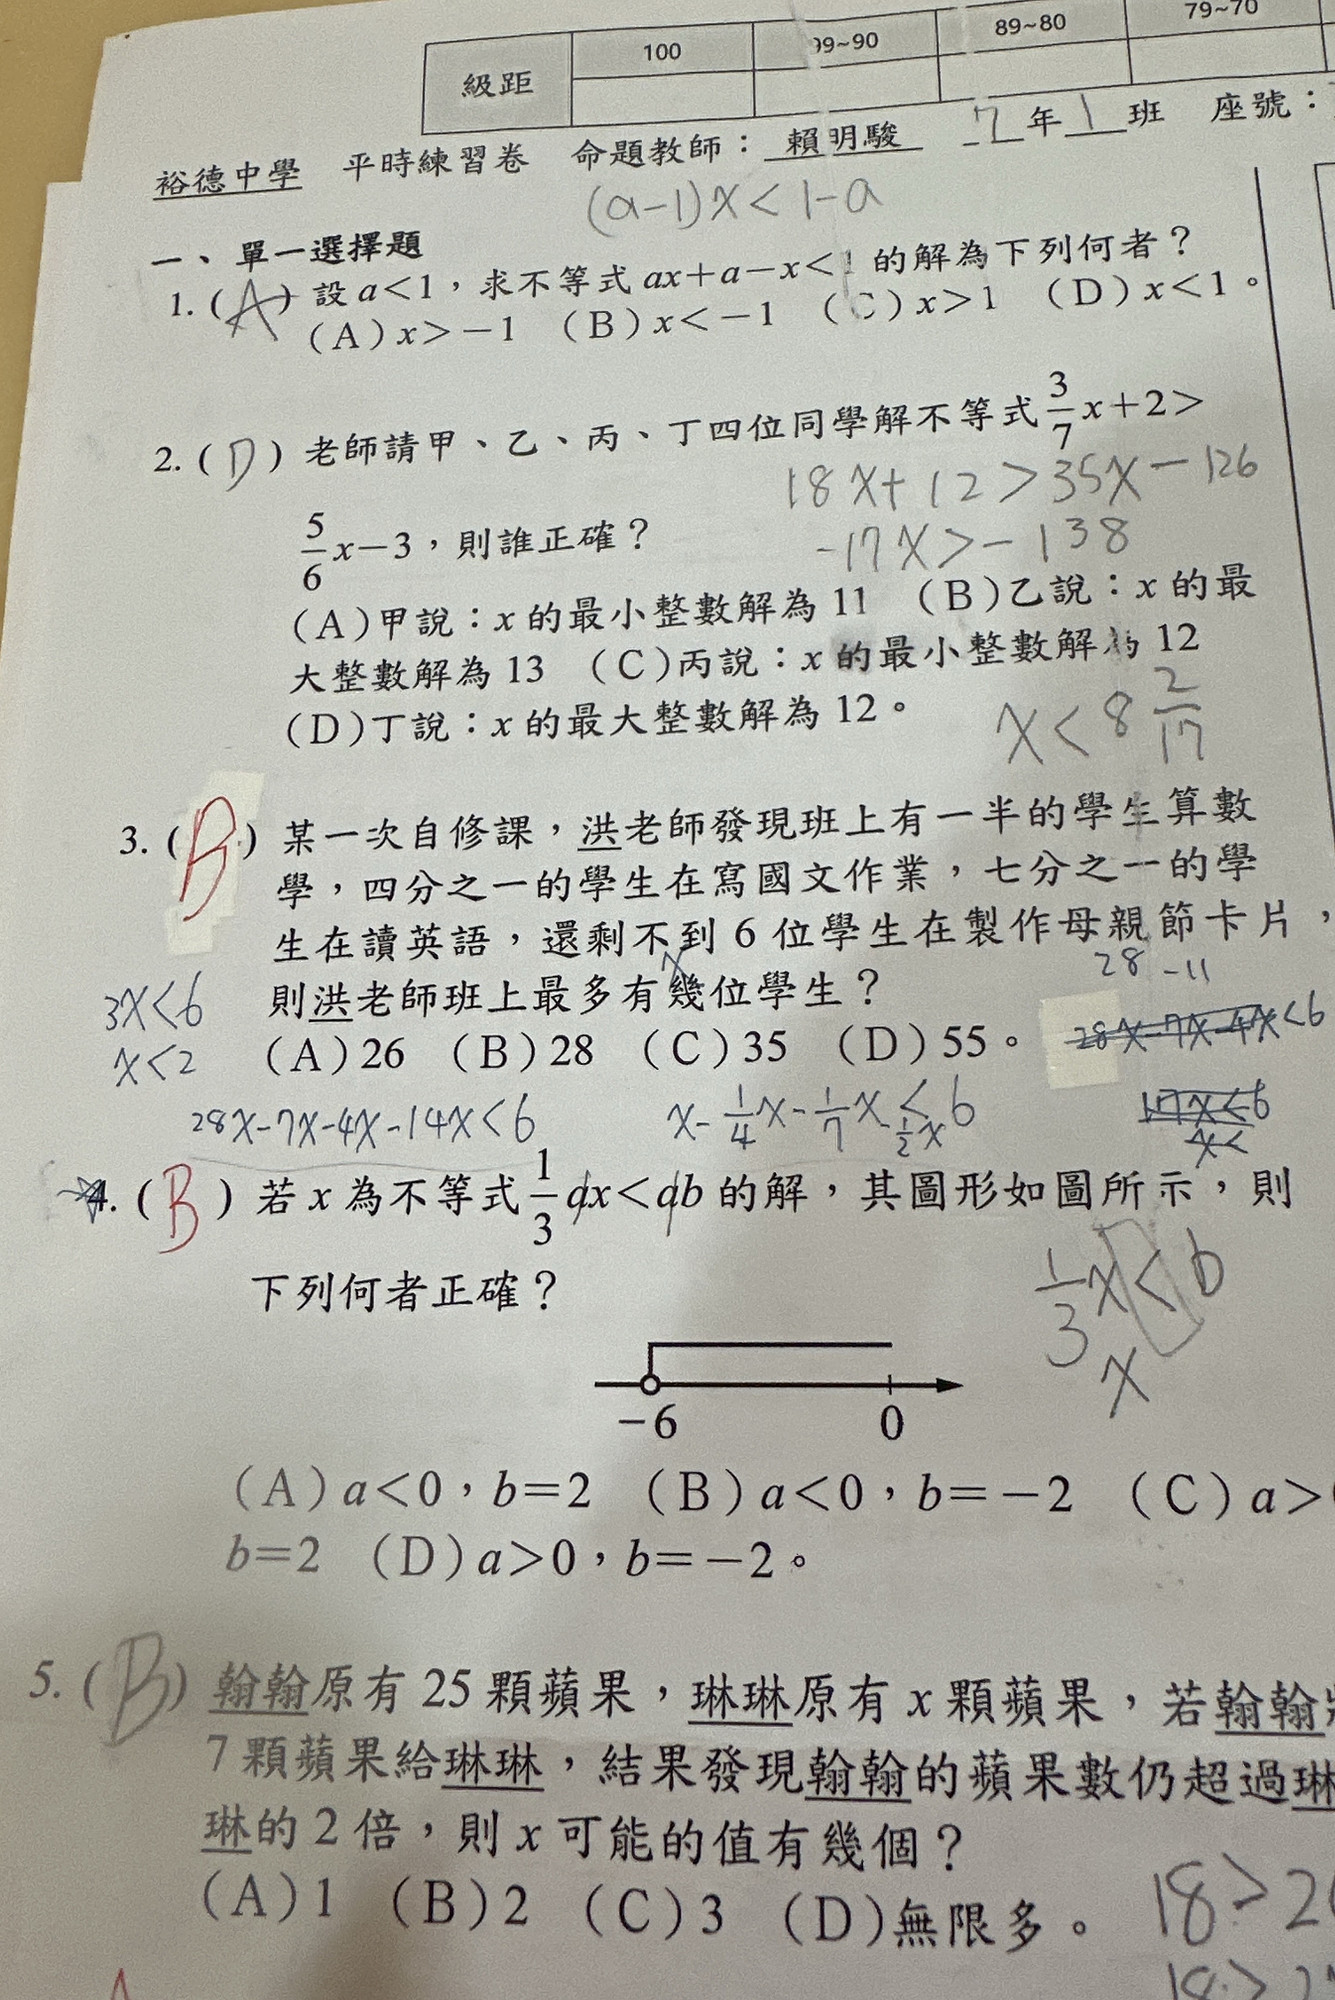 級距 100 99~90 89~80 79~70
裕德中學 平時練習卷 命題教師：賴明駿 7年1班 座號：
(a-1)x<1-a
一、單一選擇題
1. (A) 設a<1，求不等式 ax+a-x<1 的解為下列何者？
(A) x>-1 (B) x<-1 (C) x>1 (D) x<1。
2. (D) 老師請甲、乙、丙、丁四位同學解不等式 3/7 x+2>
18x+12>35x-126
5/6 x-3，則誰正確？
-17x>-138
(A)甲說：x 的最小整數解為 11 (B)乙說：x 的最
大整數解為 13 (C)丙說：x 的最小整數解為 12
(D)丁說：x 的最大整數解為 12。
x<8 2/17
3. (B) 某一次自修課，洪老師發現班上有一半的學生算數
學，四分之一的學生在寫國文作業，七分之一的學
生在讀英語，還剩不到 6 位學生在製作母親節卡片，
則洪老師班上最多有幾位學生？
x
28 -11
3x<6
x<2
(A) 26 (B) 28 (C) 35 (D) 55。
28x-7x-4x<6
28x-7x-4x-14x<6
x-1/4x-1/7x-1/2x<6
17x<6
x<
4. (B) 若 x 為不等式 1/3 ax<ab 的解，其圖形如圖所示，則
下列何者正確？
1/3x<b
x
-6 0
(A) a<0，b=2 (B) a<0，b=-2 (C) a>
b=2 (D) a>0，b=-2。
5. (B) 翰翰原有 25 顆蘋果，琳琳原有 x 顆蘋果，若翰翰
7 顆蘋果給琳琳，結果發現翰翰的蘋果數仍超過琳
琳的 2 倍，則 x 可能的值有幾個？
(A) 1 (B) 2 (C) 3 (D)無限多。
18>2
18>2